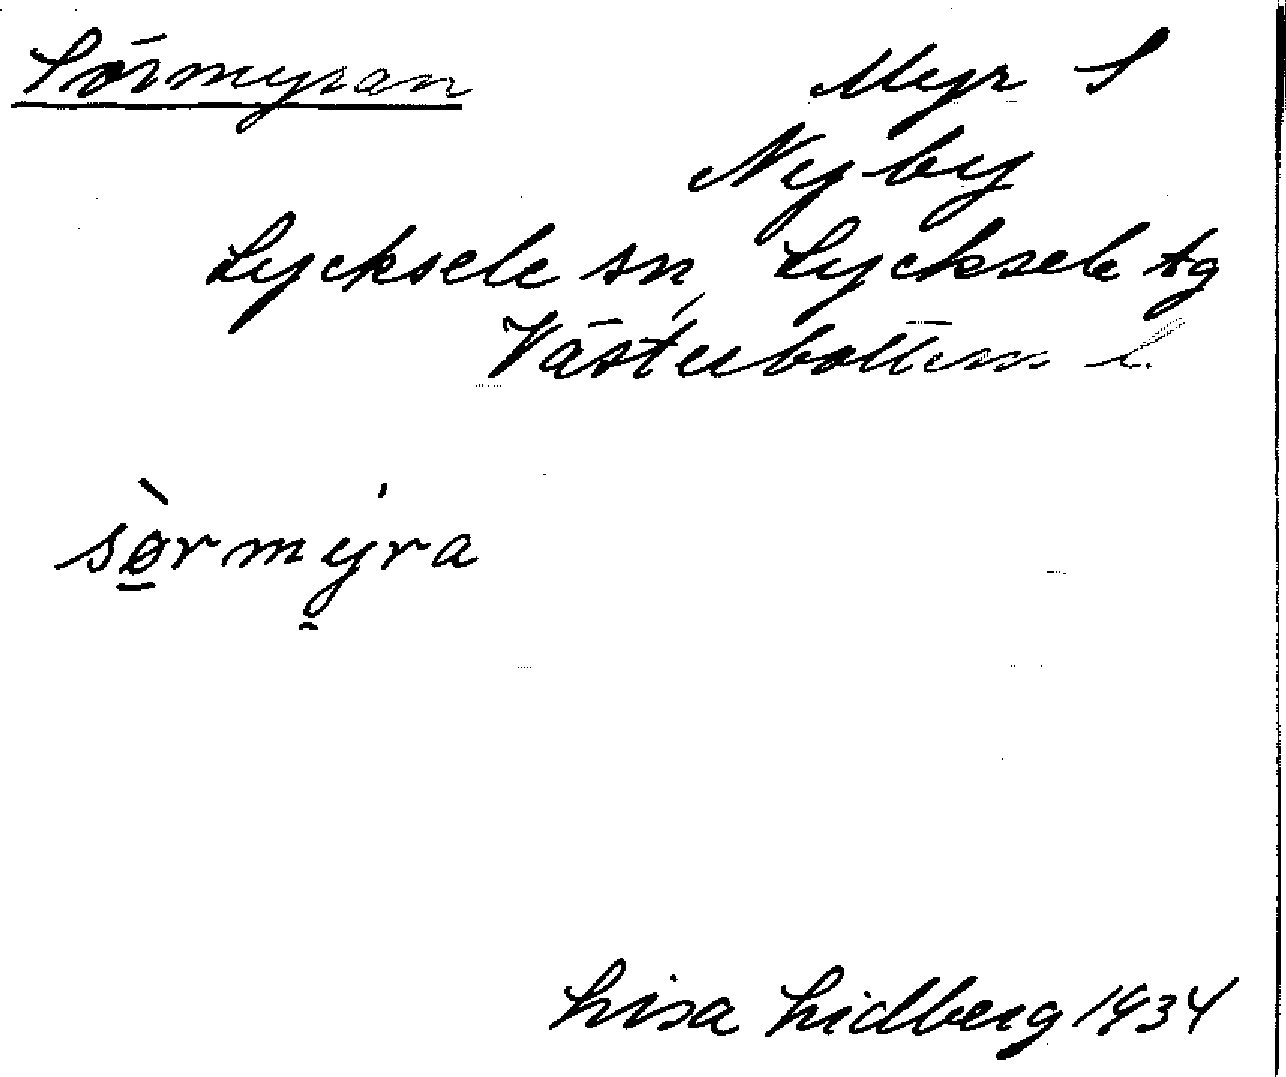 Sörmyran
Myr S
Nyby
Lycksele sn, Lycksele tg
Västerbottens l.
sø̀rmýra
Lisa Lidberg 1934